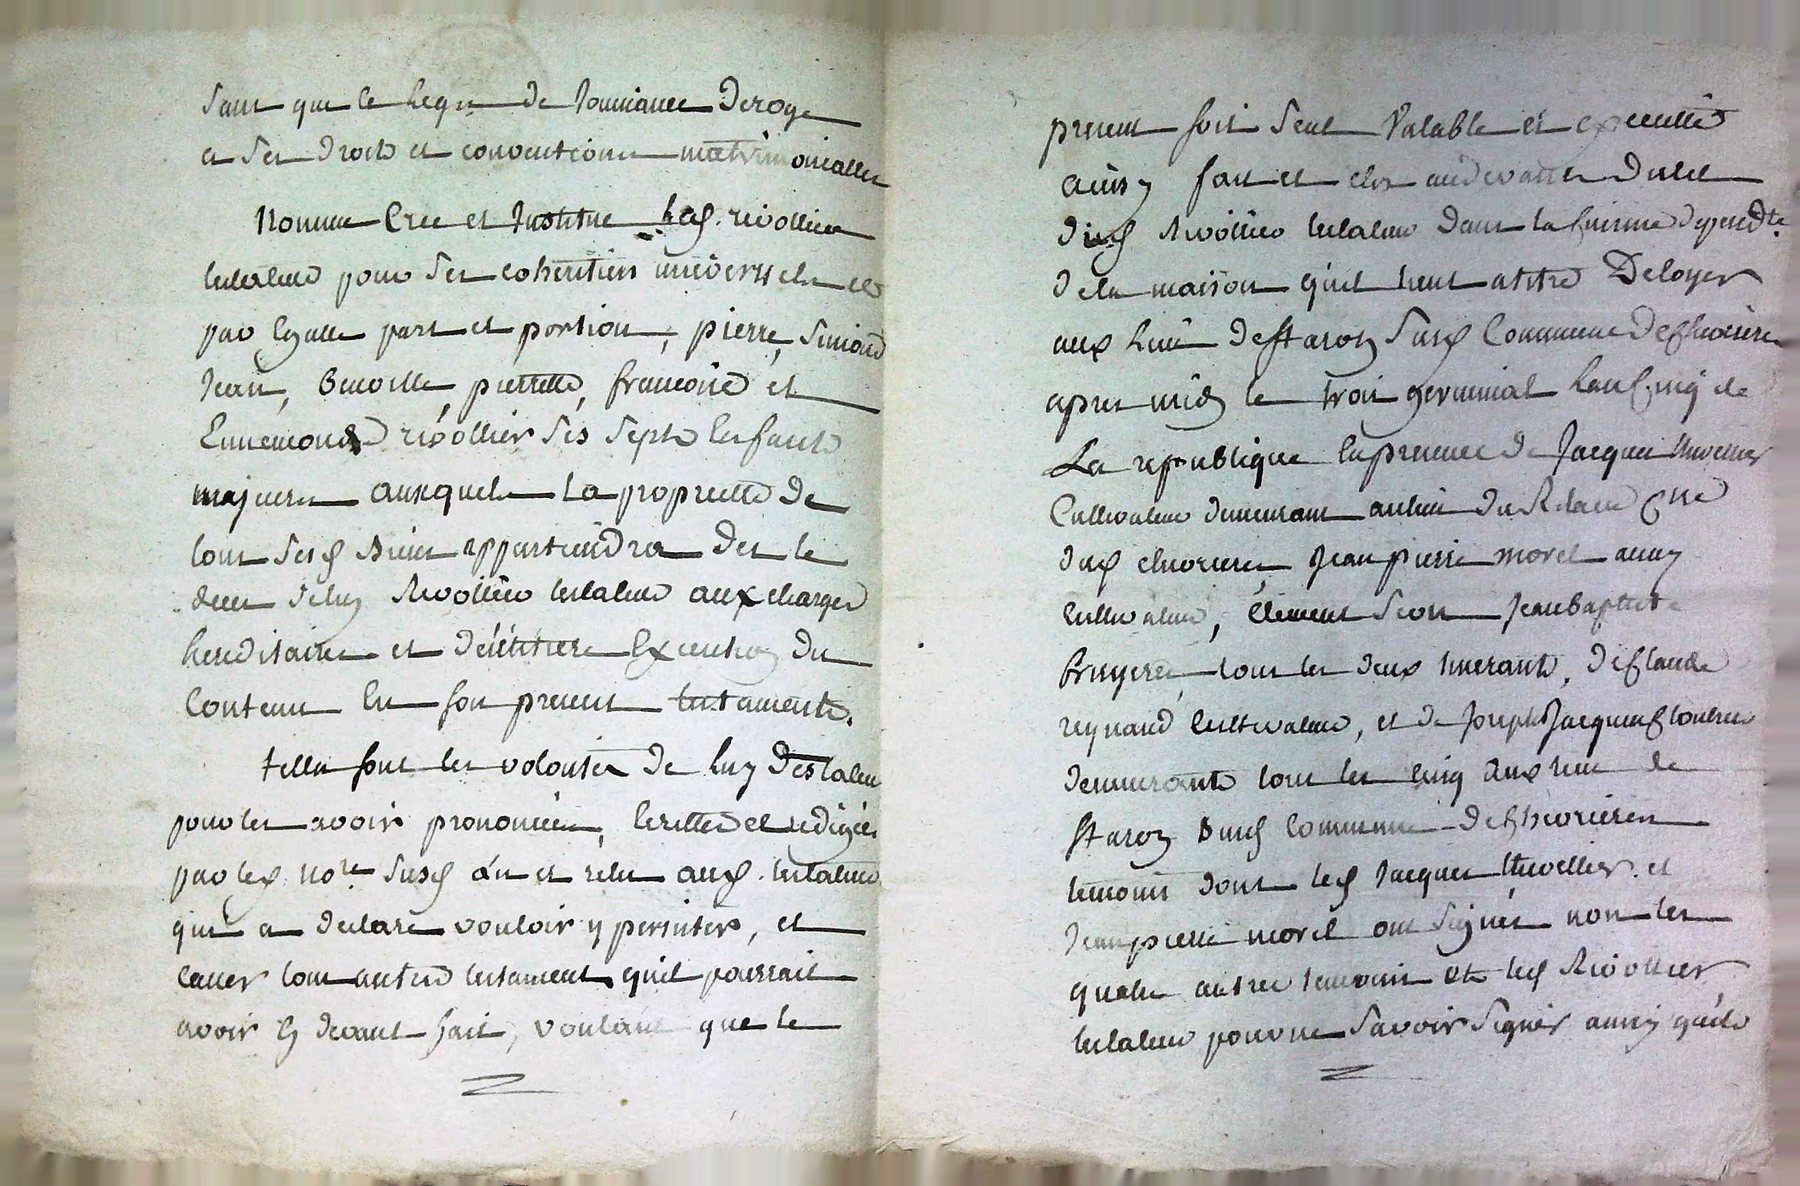 sans que le legs de jouissance deroge
a ses droits et conventions matrimonialles
Nomme Cree et Institue led. rivollier
testateur pour ses coheritiers universels et
par Egalle part et portion, pierre, Simond
Jean, Benoitte, pierrette, francoise et
Ennemond rivollier ses sept Enfants
majeurs auxquels la propriette de
tous sesd biens appartiendra des le
deces deluy Rivollier testateur aux charges
hereditaires et d'entiere Execution du
Contenu En son present testament.
telles sont les volontés de luy testateur
pour les avoir prononcées, Ecrittes et redigées
par led. no.re susd lu et relu aud. testateur
qui a declaré vouloir y persister, et
casser tout autre testament qu'il pourrait
avoir cy devant fait, voulant que le
present soit seul Valable et executté
ainsy fait et clos au devant du lit
dud Rivollier testateur dans la cuisine depend.te
de la maison qu'il tient a titre De loyer
aux lieu de Staron susd Commune de chevrieres
apres midy le trois germinal lan cinq de
La republique En presence de Jacques
Cultivateur demeurant au lieu du
dud chevrieres, Jean pierre morel aussy
Cultivateur, Clement Seon Jean baptiste
bruyere, tous les deux tisserants, de claude
reynaud Cultivateur, et de Joseph Jacques
demeurants tous les cinq aux lieu de
Staron susd Commune de Chevrieres
temoins dont led Jacques et
Jean pierre morel ont signés non les
quatre autres temoins et led Rivollier
testateur pour ne savoir signer ainsy qu'ils